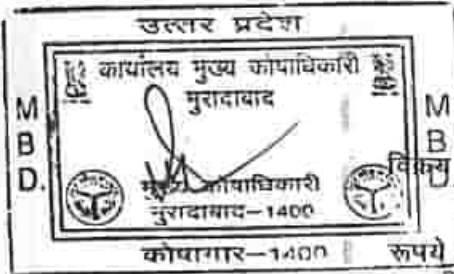 उत्तर प्रदेश
कार्यालय मुख्य कोषाधिकारी
मुरादाबाद
M B D.
M B D
विक्रय
मुख्य कोषाधिकारी
मुरादाबाद-1400
कोषागार-1400
रूपये